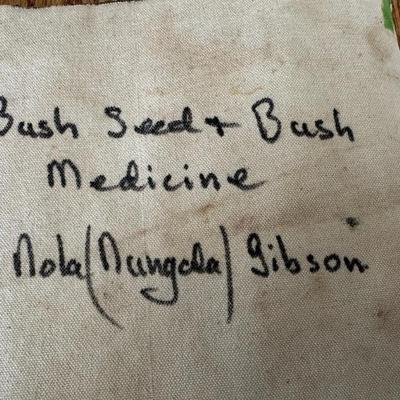 Bush Seed + Bush
Medicine
Nola (Nungala) Gibson